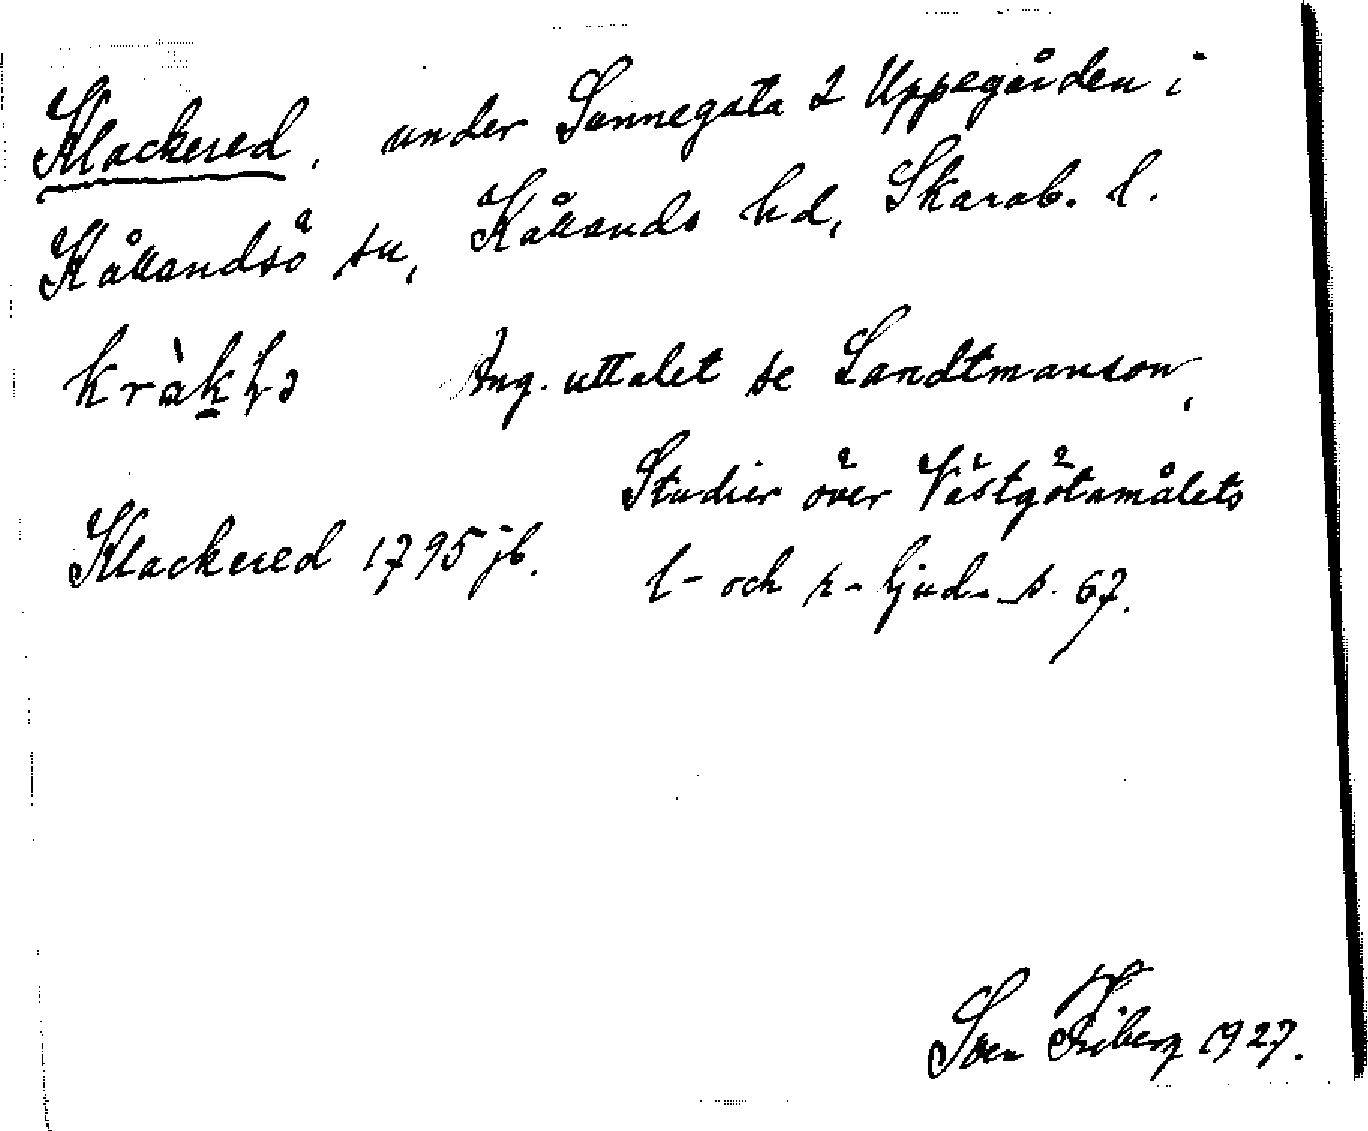 Klackered, under Sunnegata 2 Uppegården i
Kållandsö sn, Kållands hd, Skarab. l.
Ang. uttalet se Landtmanson,
Studier över Västgötamålets
Klackered 1795 jb.
l- och r-ljud s. 67.
Sven Friberg 1927.